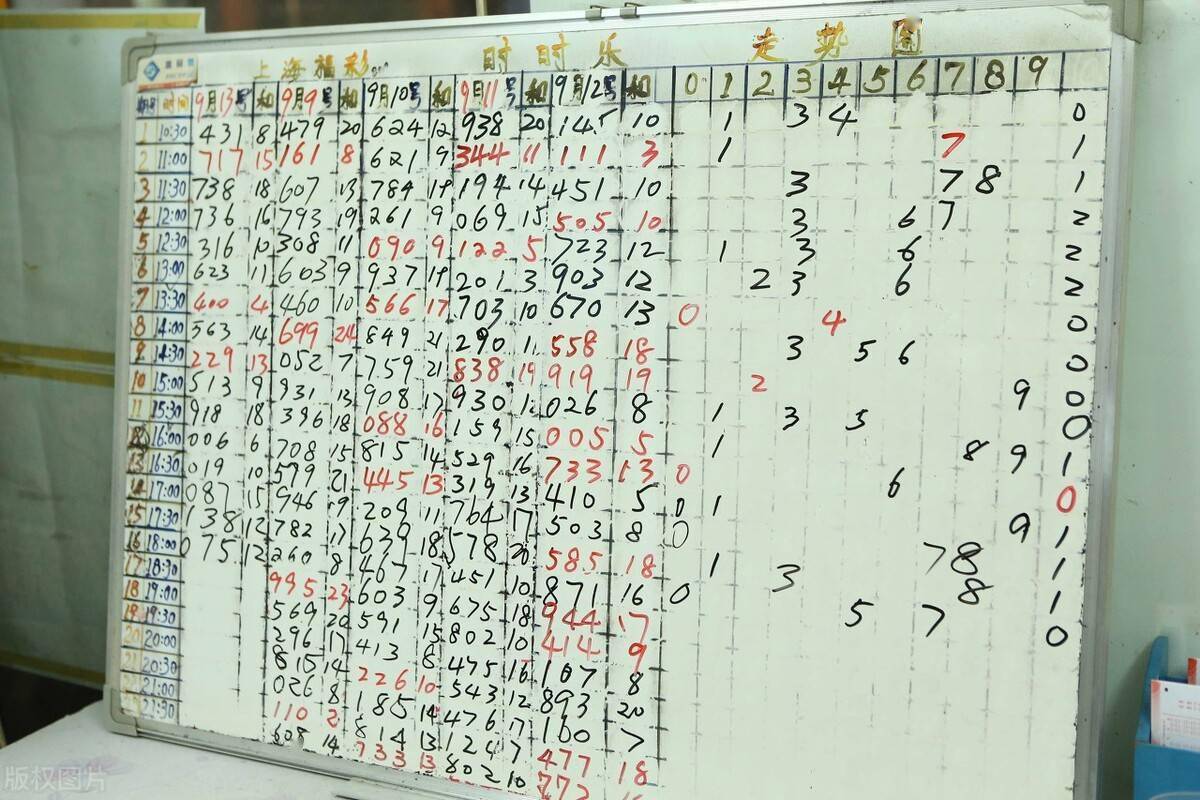 上海福彩 时时乐 走势图
期号 时间 9月13号 和 9月9号 和 9月10号 和 9月11号 和 9月12号 和 0 1 2 3 4 5 6 7 8 9
1 10:30 431 8 479 20 624 12 938 20 145 10 1 3 4 0
2 11:00 717 15 161 8 621 9 344 11 111 3 1 7 1
3 11:30 738 18 607 13 784 19 194 14 451 10 3 7 8 1
4 12:00 736 16 793 19 261 9 069 15 505 10 3 6 7 2
5 12:30 316 10 308 11 090 9 122 5 723 12 1 3 6 2
6 13:00 623 11 603 9 937 19 201 3 903 12 2 3 6 2
7 13:30 400 4 460 10 566 17 703 10 670 13 0 4 0
8 14:00 563 14 699 24 849 21 290 558 18 3 5 6 0
9 14:30 229 13 052 7 759 21 838 19 919 19 2 9 0
10 15:00 513 9 931 13 908 17 930 026 8 1 3 5 0
11 15:30 918 18 396 18 088 16 159 15 005 5 1 8 9 1
16:00 006 6 708 15 815 14 529 16 733 13 0 6 0
13 16:30 019 10 579 21 445 13 319 13 410 5 0 1 9 1
14 17:00 087 15 946 19 209 11 764 17 503 8 0 7 8 1
15 17:30 138 12 782 17 639 18 578 20 585 18 1 3 8 1
16 18:00 075 12 260 8 467 17 451 10 871 16 0 5 7 0
17 18:30 995 23 603 9 675 18 944 17
18 19:00 569 20 591 15 802 10 414 9
19 19:30 296 17 413 8 475 16 107 8
20 20:00 815 14 226 10 543 12 893 20
21 20:30 026 8 185 14 476 17 160 7
21:00 110 2 814 13 124 7 477 18
21:30 608 14 733 13 802 10 772
版权图片